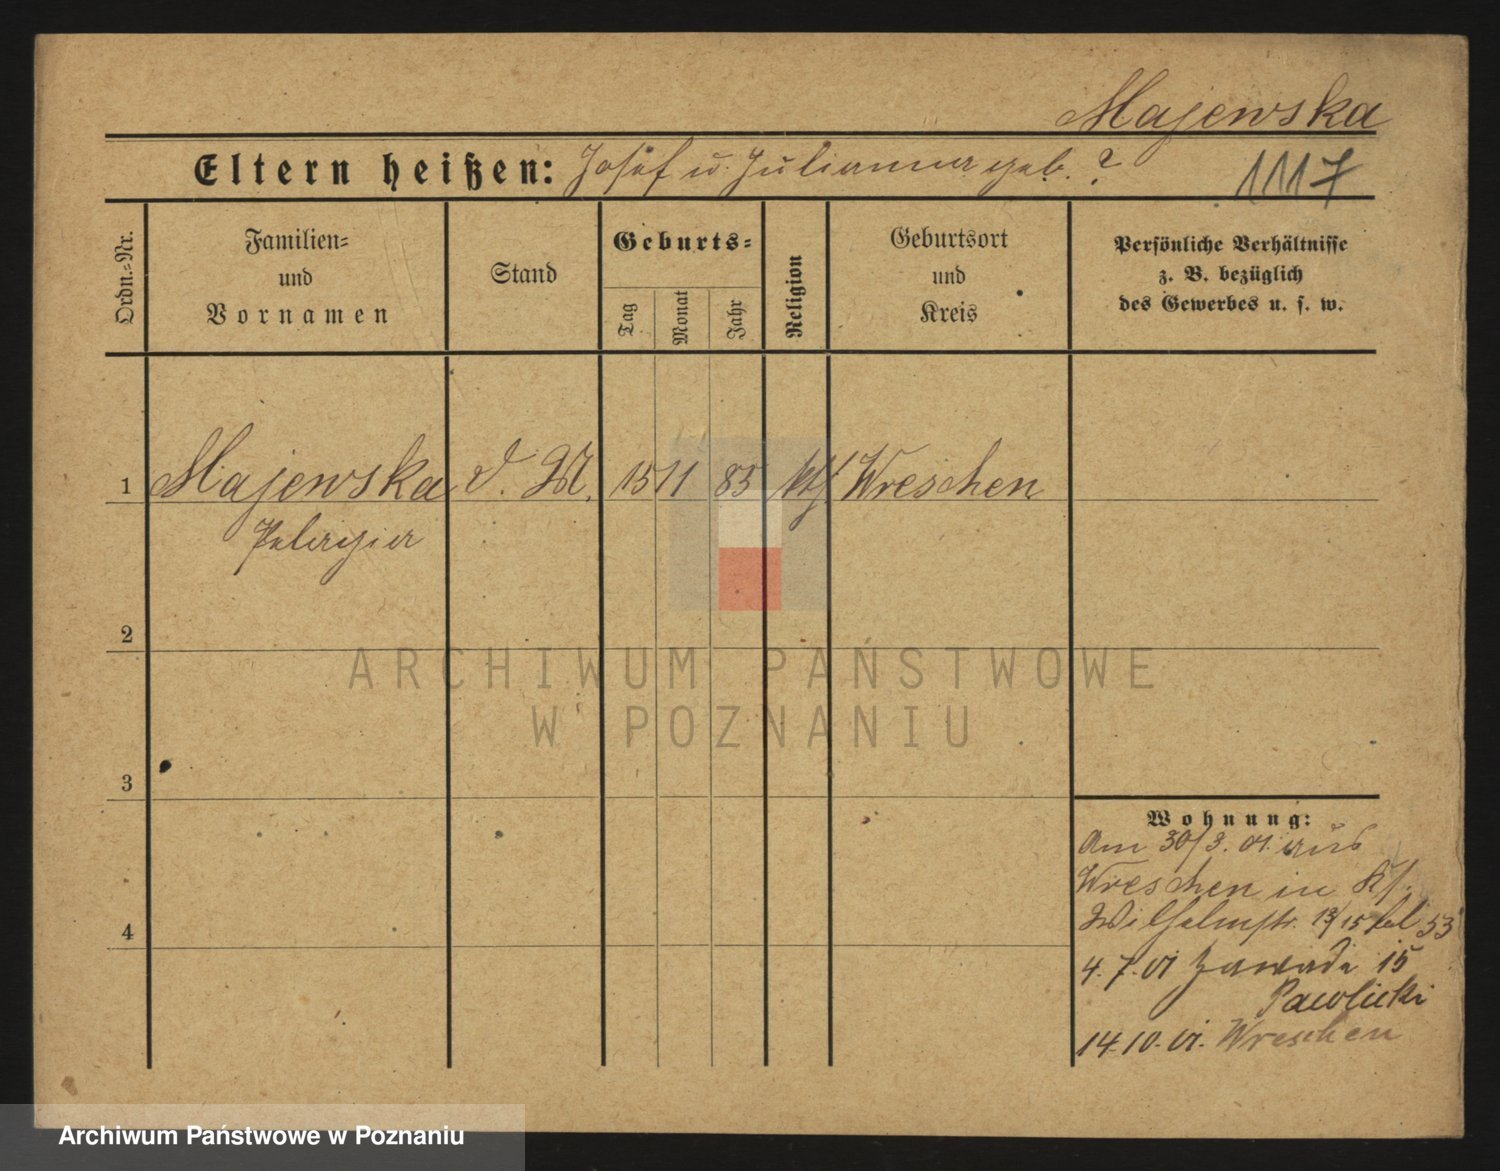 Majewska
Eltern heißen: Josef u. Julianna geb. ?
1117
Ordn.=Nr.
Familien=
und
Vornamen
Stand
Geburts=
Tag
Monat
Jahr
Religion
Geburtsort
und
Kreis
Persönliche Verhältnisse
z. B. bezüglich
des Gewerbes u. s. w.
1 Majewska d. M. 15 11 85 kth Wreschen
Pelagia
2
3
4
Wohnung:
Am 30/3. 01. aus
Wreschen in
Wilhelmstr. 13/15 bei 53
4. 7. 01 Zawade 15
Pawlicki
14. 10. 01. Wreschen
ARCHIWUM PAŃSTWOWE
W POZNANIU
Archiwum Państwowe w Poznaniu